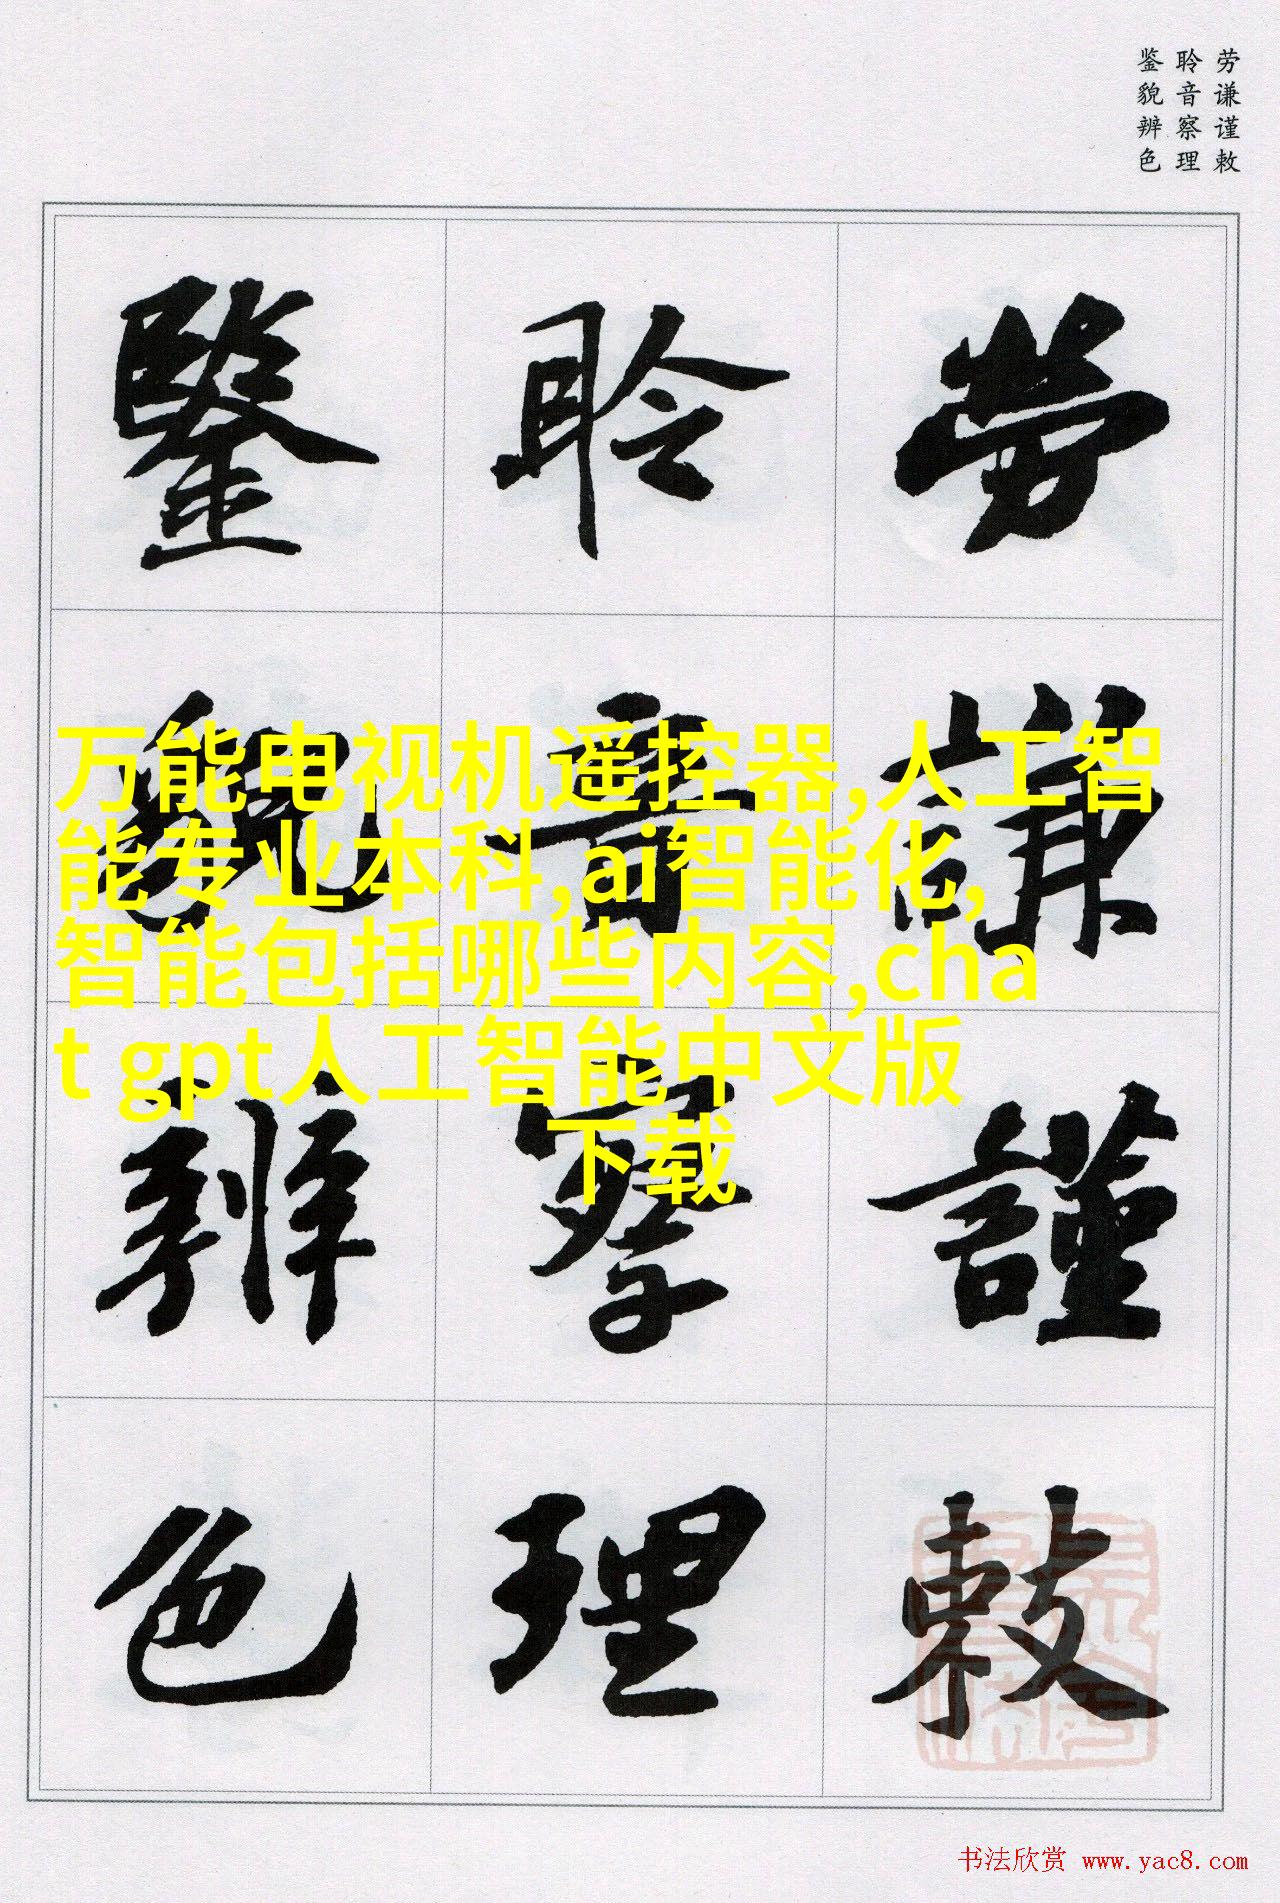 劳谦谨敕
聆音察理
鉴貌辨色
勞謙謹敕
聆音察理
鑒貌辨色
万能电视机遥控器,人工智
能专业本科,ai智能化,
智能包括哪些内容,cha
t gpt人工智能中文版
下载
书法欣赏 www.yac8.com